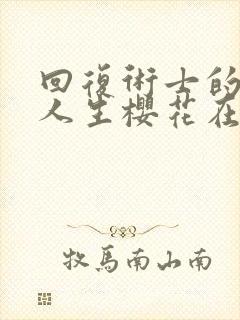 回復術士的
人生櫻花在
牧馬南山南